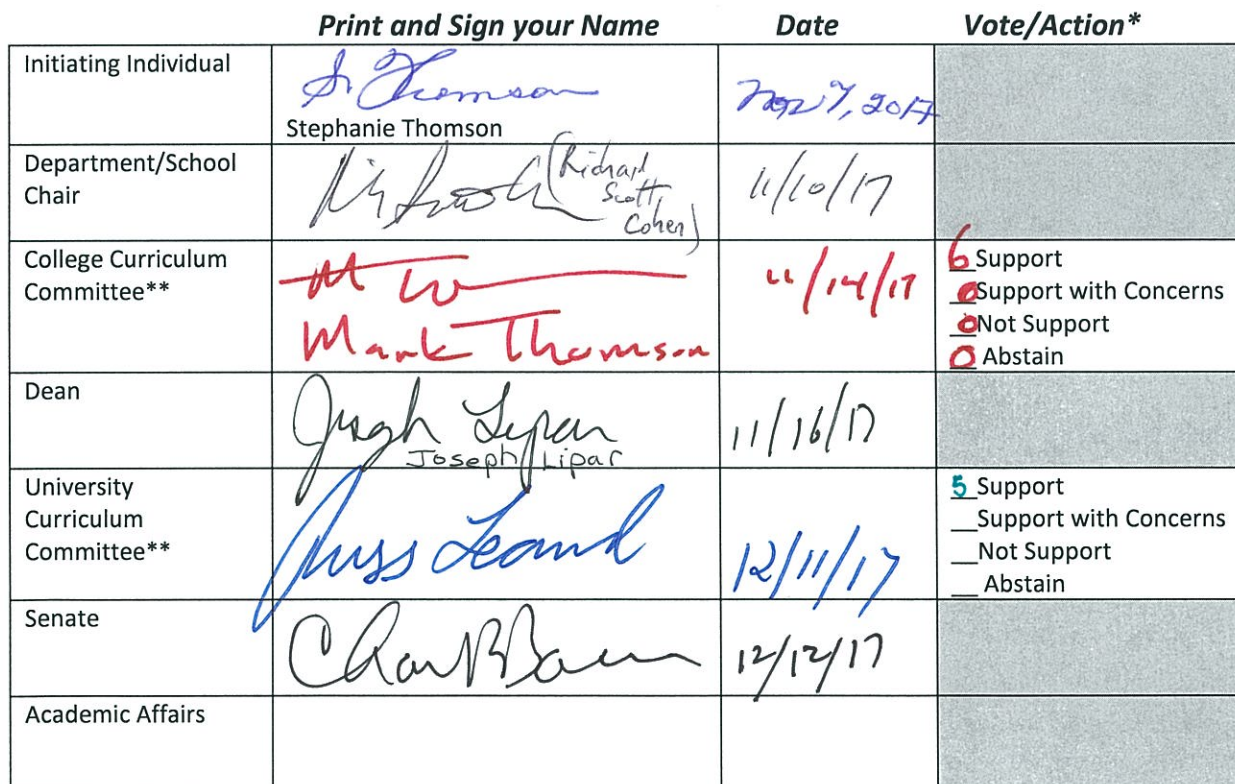 Print and Sign your Name Date Vote/Action*
Initiating Individual
S Thomson
Nov 7, 2017
Stephanie Thomson
Department/School
Chair
(Richard
Scott
Cohen)
11/10/17
College Curriculum
Committee**
Mark Thomson
11/14/17
6 Support
0 Support with Concerns
0 Not Support
0 Abstain
Dean
Joseph Lipar
Joseph Lipar
11/16/17
University
Curriculum
Committee**
12/11/17
5 Support
__Support with Concerns
__Not Support
__ Abstain
Senate
12/12/17
Academic Affairs